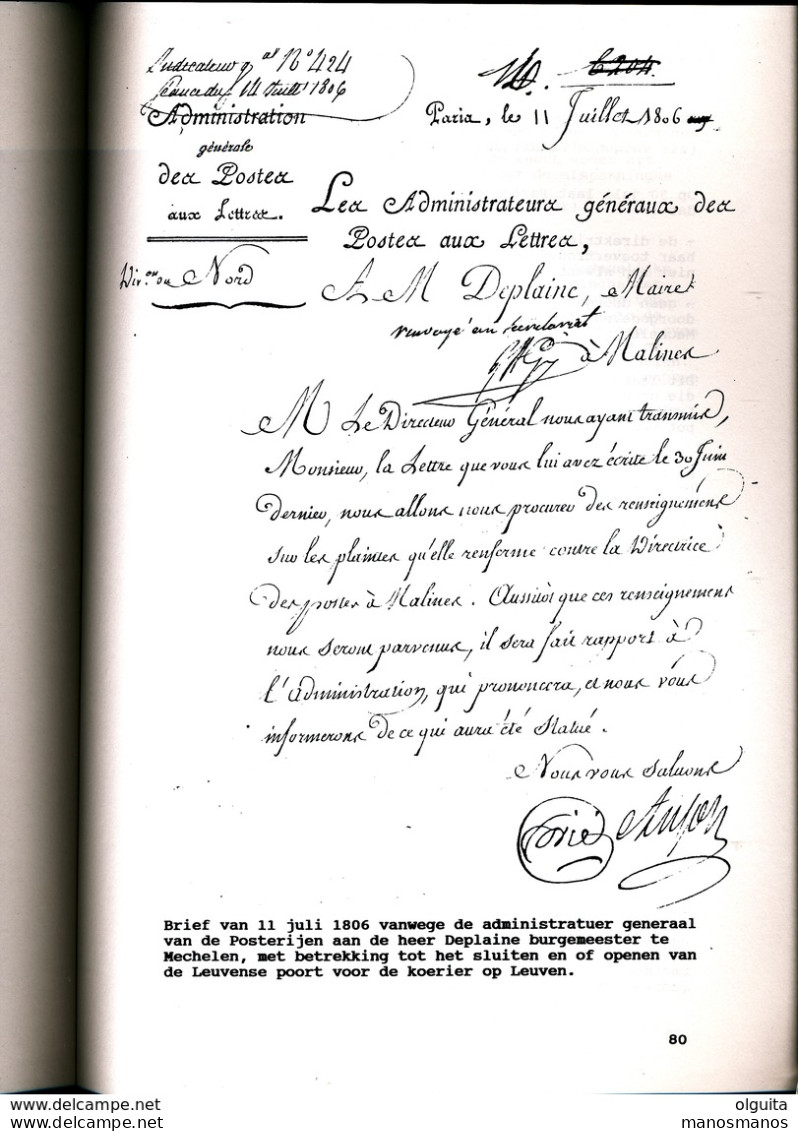 Indicateur gal N° 424
Séance du 14 Juillet 1806
Administration
générale
des Postes
aux Lettres.
Don du Nord
6204.
Paris, le 11 Juillet 1806
Les Administrateurs généraux des
Postes aux Lettres,
A M Deplaine, Maire
renvoyé au secrétariat
à Malines
M Le Directeur Général nous ayant transmis,
Monsieur, la Lettre que vous lui avez écrite le 30 Juin
dernier, nous allons nous procurer des renseignemens
sur les plaintes qu'elle renferme contre la Directrice
des postes à Malines. Aussitôt que ces renseignemens
nous seront parvenus, il sera fait rapport à
l'administration, qui prononcera, et nous vous
informerons de ce qui aura été statué.
Nous vous saluons
Anson
Brief van 11 juli 1806 vanwege de administratuer generaal
van de Posterijen aan de heer Deplaine burgemeester te
Mechelen, met betrekking tot het sluiten en of openen van
de Leuvense poort voor de koerier op Leuven.
80
olguita
manosmanos